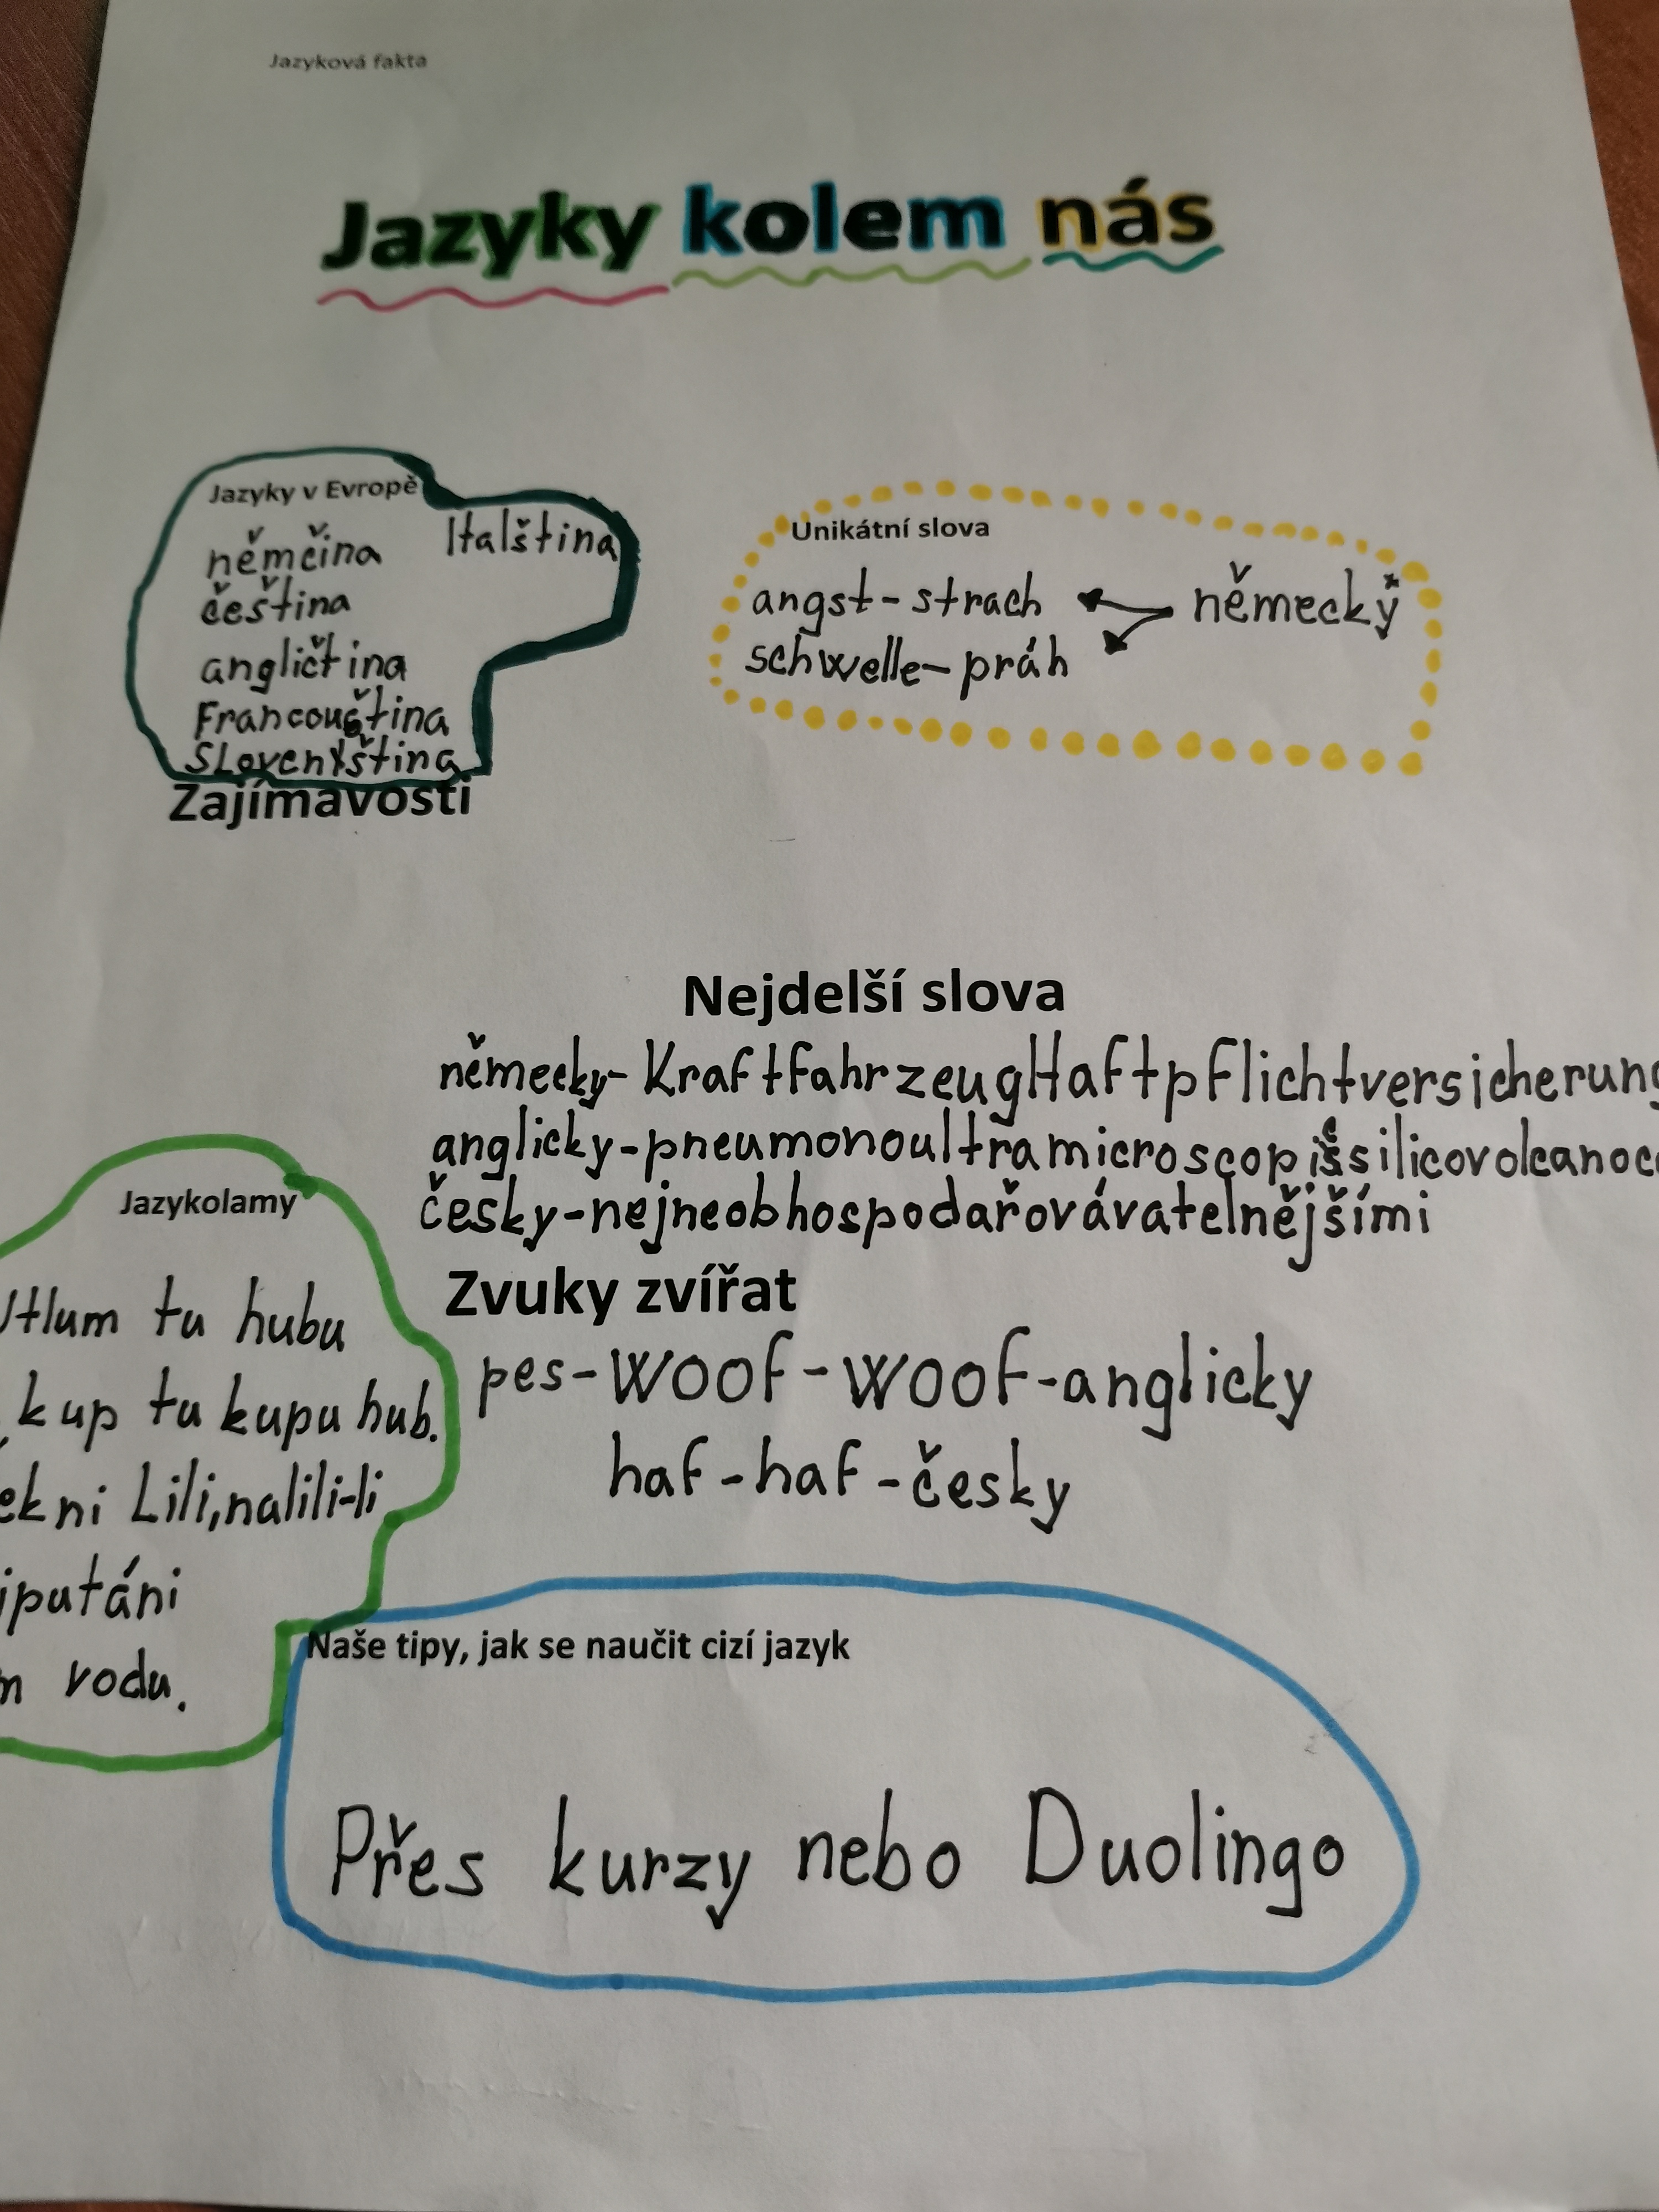 Jazyková fakta
Jazyky kolem nás
Jazyky v Evropě
němčina
Italština
čeština
angličtina
Francouština
Slovenština
Unikátní slova
angst-strach
německy
schwelle-práh
Zajímavosti
Nejdelší slova
německy-KraftfahrzeugHaftpflichtversicherung
anglicky-pneumonoultramicroscopi
česky-nejneobhospodařovávatelnějšími
Zvuky zvířat
pes-woof-woof-anglicky
haf-haf-česky
Jazykolamy
Utlum tu hubu
kup tu kupu hub.
ekni Lili,nalili-li
iputáni
m vodu.
Naše tipy, jak se naučit cizí jazyk
Přes kurzy nebo Duolingo